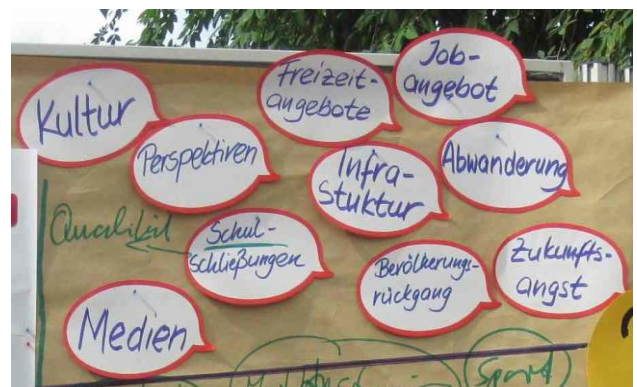 Kultur
Freizeit-
angebote
Job-
angebot
Perspektiven
Infra-
stuktur
Abwanderung
Qualität
Schul-
schließungen
Bevölkerungs-
rückgang
Zukunfts-
angst
Medien
Sport